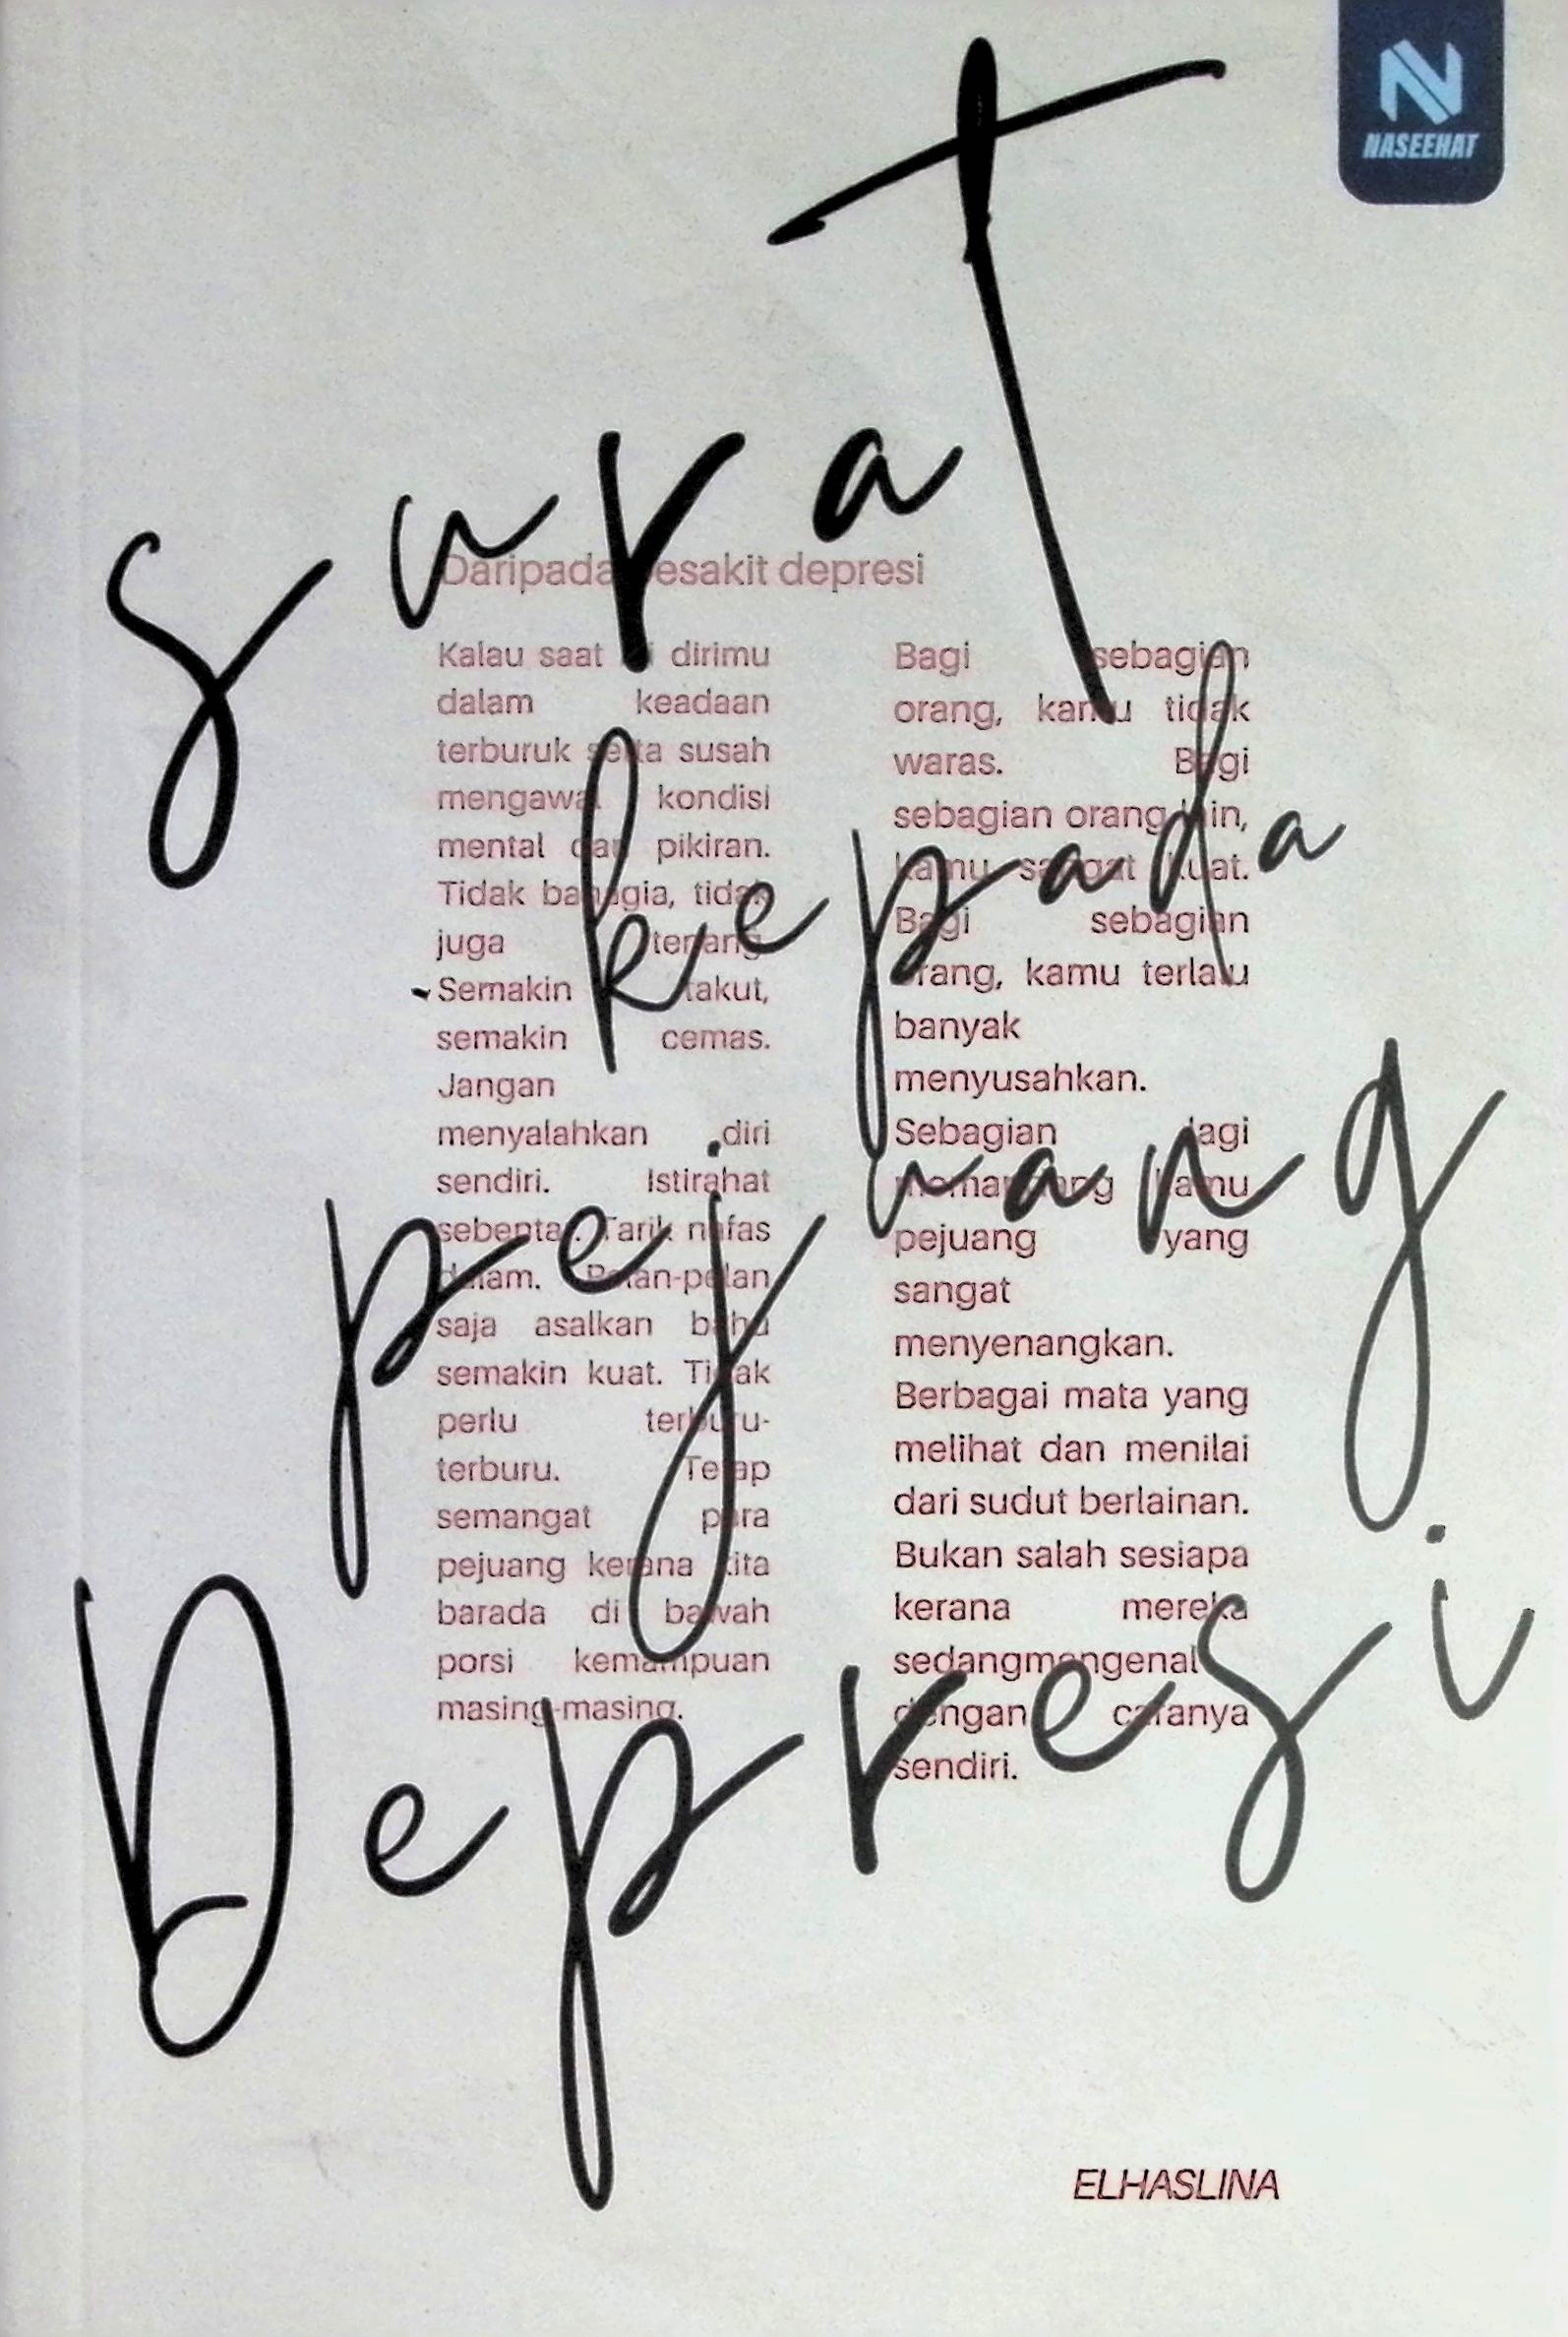 NASEEHAT
surat
kepada
pejuang
Depresi
Daripada pesakit depresi
Kalau saat ini dirimu
dalam keadaan
terburuk serta susah
mengawal kondisi
mental dan pikiran.
Tidak bahagia, tidak
juga tenang.
Semakin takut,
semakin cemas.
Jangan
menyalahkan diri
sendiri. Istirahat
sebentar. Tarik nafas
dalam. Pelan-pelan
saja asalkan bahu
semakin kuat. Tidak
perlu terburu-
terburu. Tetap
semangat para
pejuang kerana kita
barada di bawah
porsi kemampuan
masing-masing.
Bagi sebagian
orang, kamu tidak
waras. Bagi
sebagian orang lain,
kamu sangat kuat.
Bagi sebagian
orang, kamu terlalu
banyak
menyusahkan.
Sebagian lagi
memandang kamu
pejuang yang
sangat
menyenangkan.
Berbagai mata yang
melihat dan menilai
dari sudut berlainan.
Bukan salah sesiapa
kerana mereka
sedangmengenal
dengan caranya
sendiri.
ELHASLINA